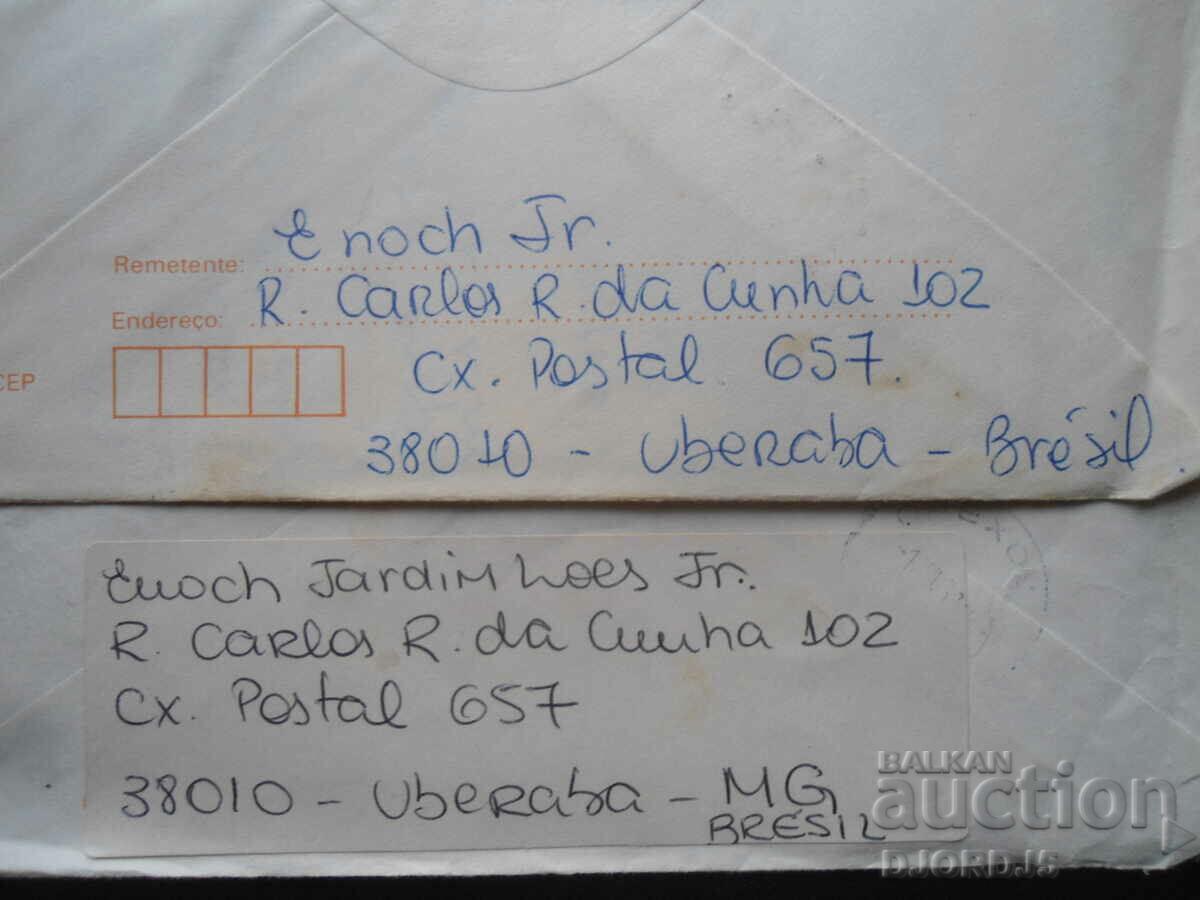 Enoch Jr.
Remetente:
R. Carlos R. da Cunha 102
Endereço:
Cx. Postal 657.
CEP
38010 - Uberaba - Brésil.
Enoch Jardim Loes Jr.
R. Carlos R. da Cunha 102
Cx. Postal 657
38010 - Uberaba - MG
BRESIL
BALKAN
auction
DJORDJ5